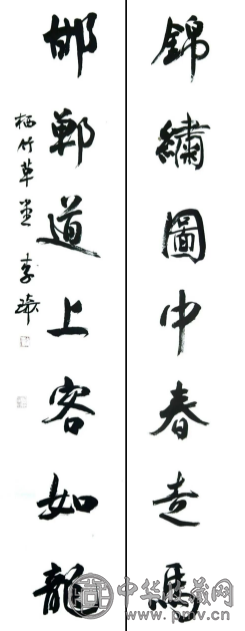 錦繡圖中春走馬
邯鄲道上客如龍
栖竹草堂
中华收藏网
www.pmv.cn